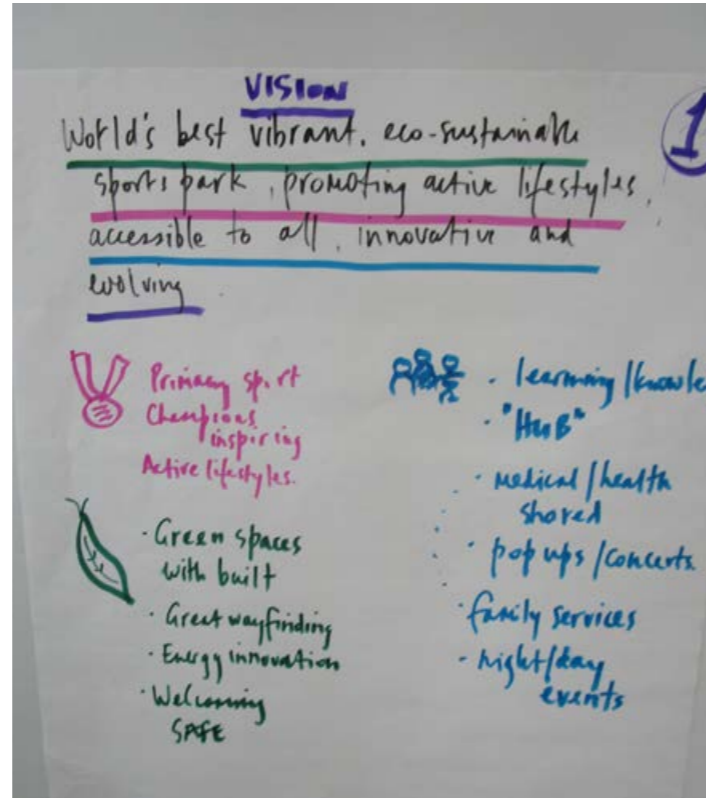 VISION
1
World's best vibrant, eco-sustainable
sports park, promoting active lifestyles,
accessible to all, innovative and
evolving.
Primary sport
Champions
inspiring
Active lifestyles.
· Green spaces
with built
· Great wayfinding
· Energy innovation
· Welcoming
SAFE
· learning/knowle
· "HuB"
· medical/health
shared
· pop ups/concerts.
· family services
· night/day
events